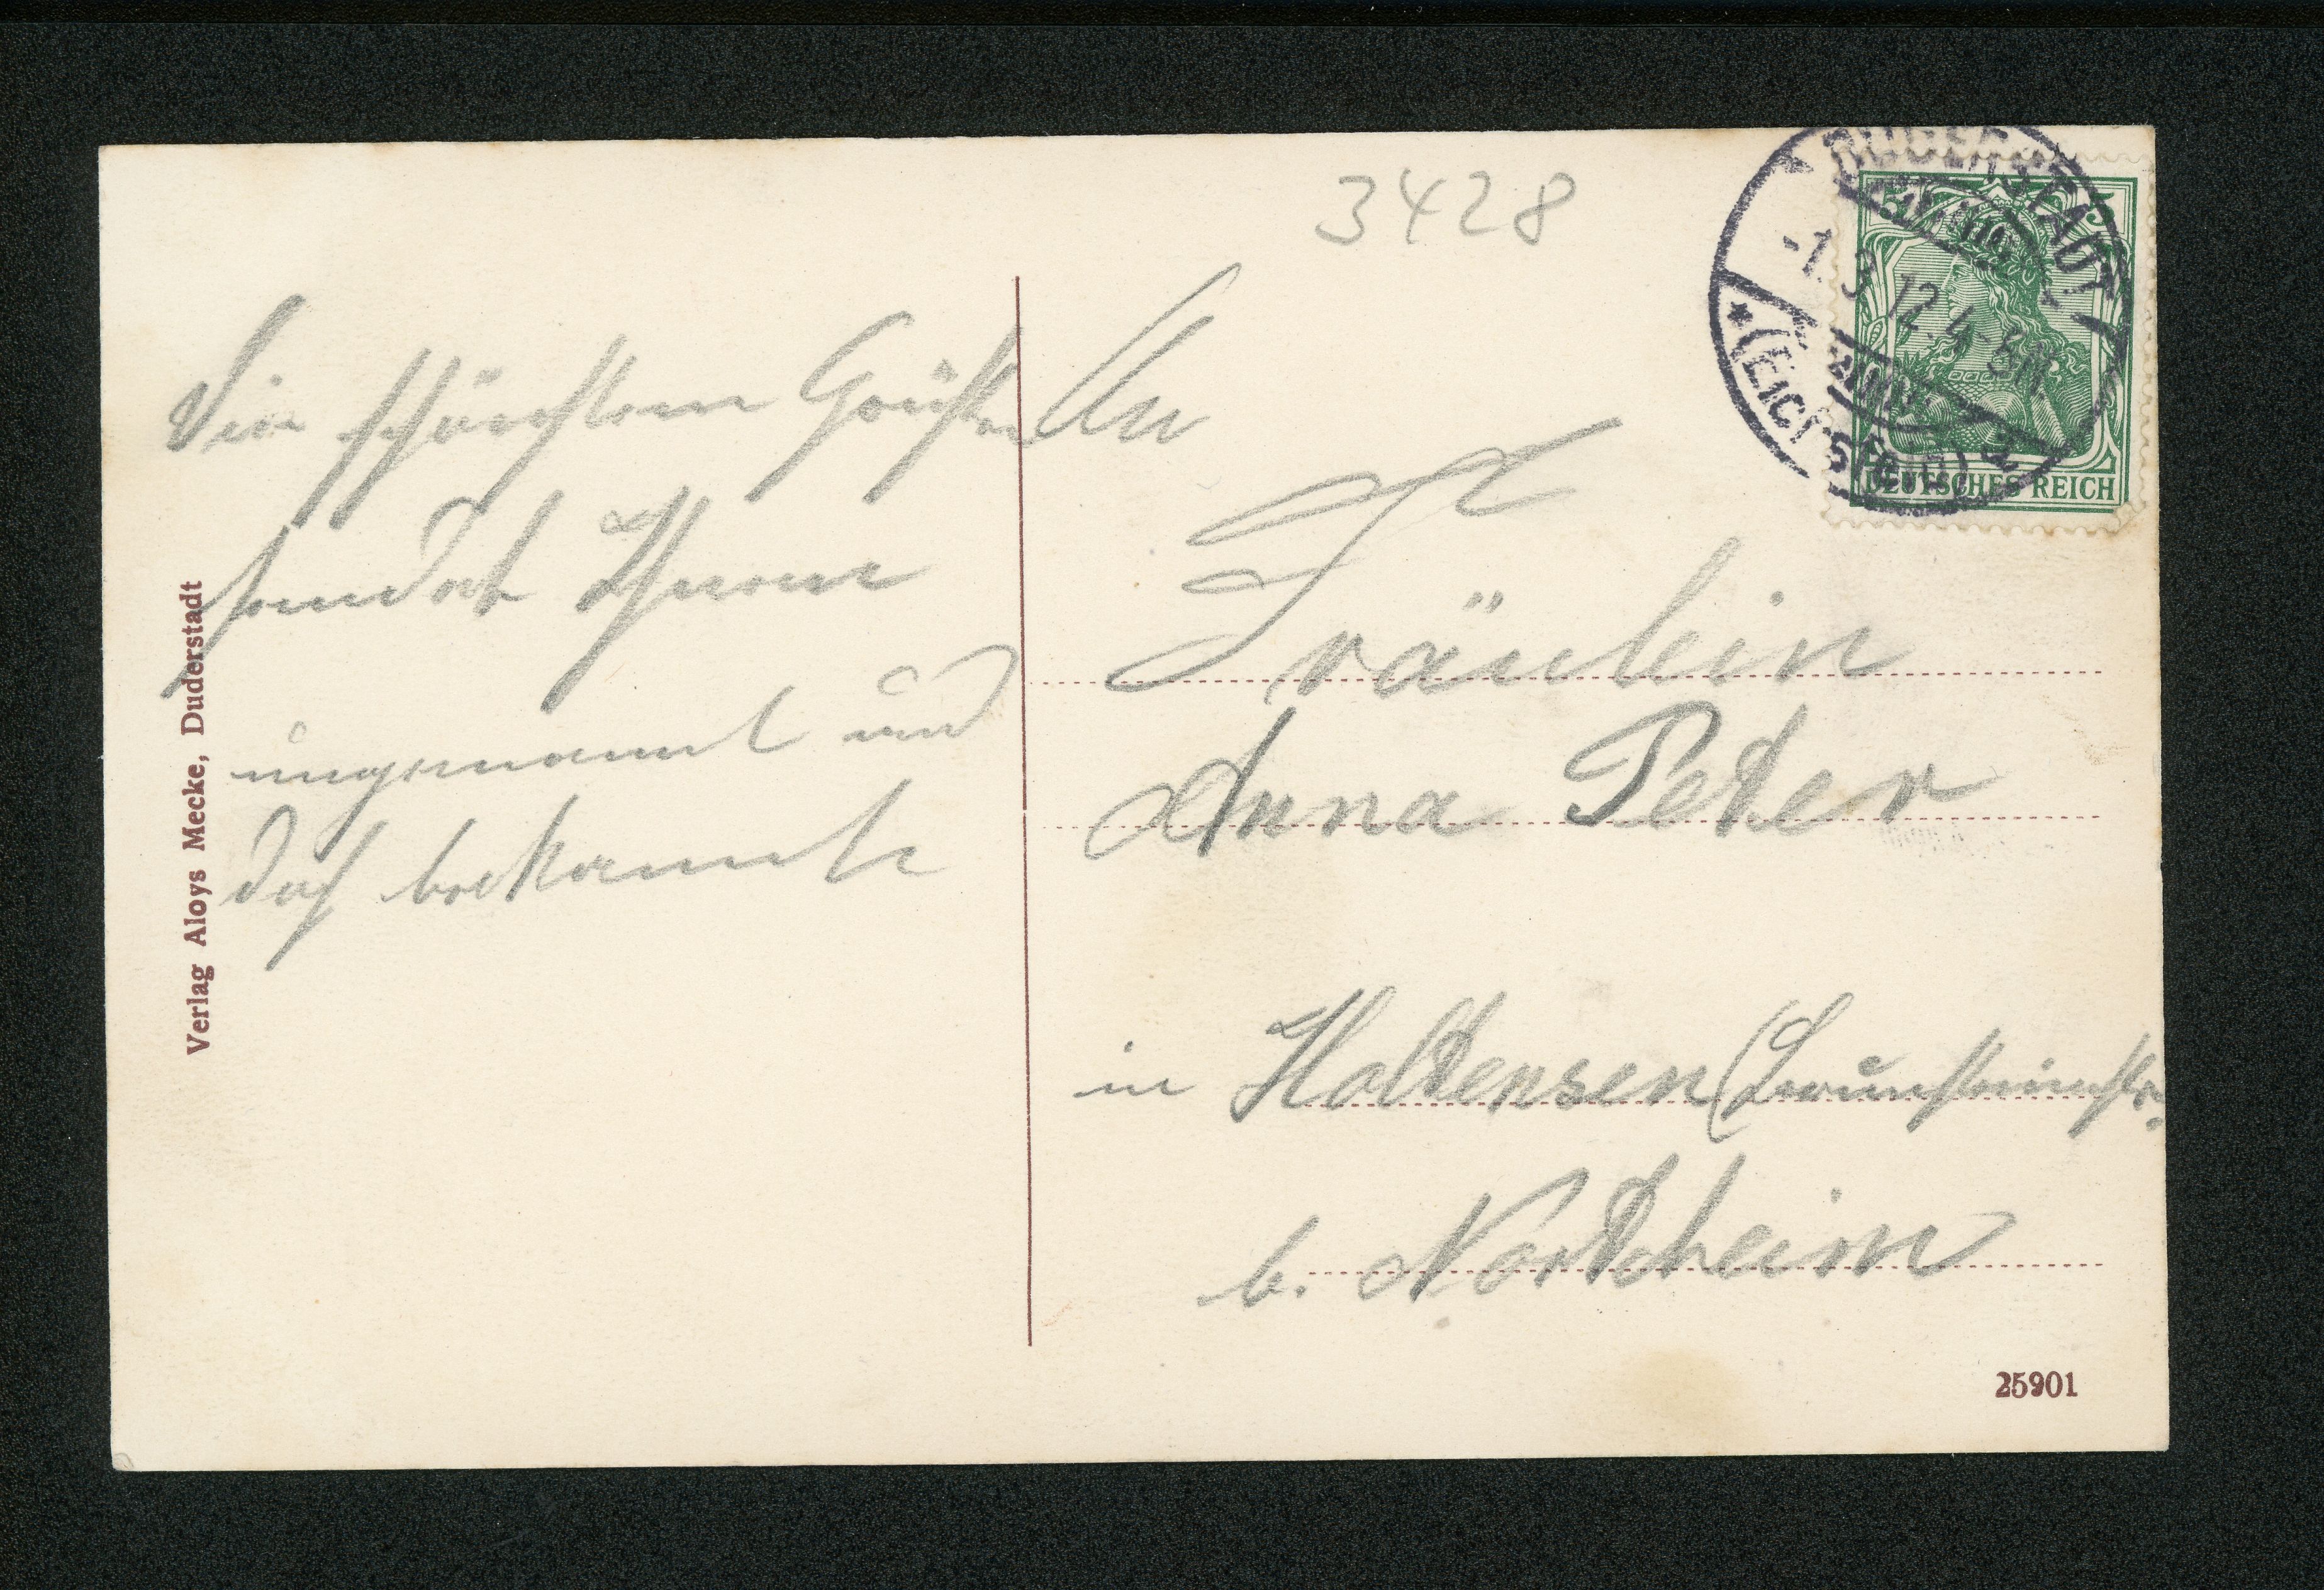 3428
DUDERSTADT
-1.3.12.4-5N.
* (EICHSFELD)
DEUTSCHES REICH
Die schönsten Grüße
sendet Ihnen
ungenannt und
doch bekannt
Verlag Aloys Mecke, Duderstadt
An
Fräulein
Anna Peter
in Holtensen
b. Northeim
25901